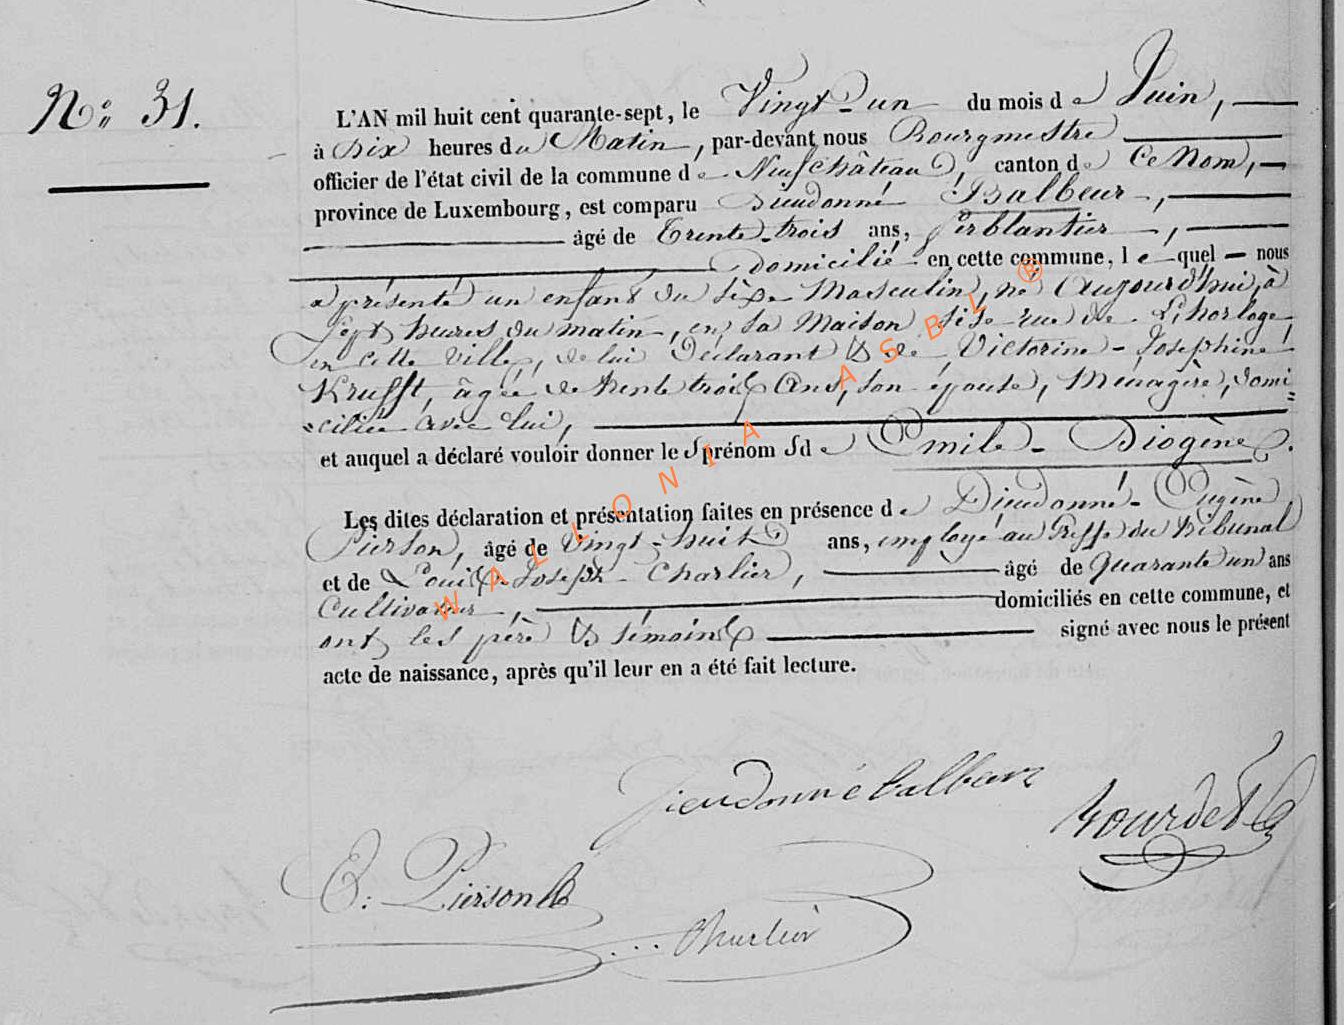 N.° 31.
L'AN mil huit cent quarante-sept, le Vingt-un du mois de Juin,
à dix heures du Matin, par-devant nous Bourgmestre
officier de l'état civil de la commune de Neufchâteau, canton de Ce Nom,
province de Luxembourg, est comparu Dieudonné Balbeur,
âgé de Trente-trois ans, ferblantier,
domicilié en cette commune, lequel nous
a présenté un enfant du sèxe Masculin, né Aujourd'hui, à
sept heures du matin, en sa Maison sise rue de l'horloge
en cette ville, de lui Déclarant & de Victorine-Josephine
Krufft, âgée de trente trois Ans, son épouse, Ménagère, domi
ciliée avec lui,
et auquel a déclaré vouloir donner les prénoms de Emile-Diogène.
Les dites déclaration et présentation faites en présence de Dieudonné-Eugène
Pierson, âgé de Vingt-huit ans, employé au Greffe du tribunal
et de Louis-Joseph Charlier, âgé de Quarante un ans
Cultivateur, domiciliés en cette commune, et
ont les père & témoins signé avec nous le présent
acte de naissance, après qu'il leur en a été fait lecture.
Dieudonné balbeur
Bourdet
E: Pierson
Charlier
WALLONIA ASBL ®